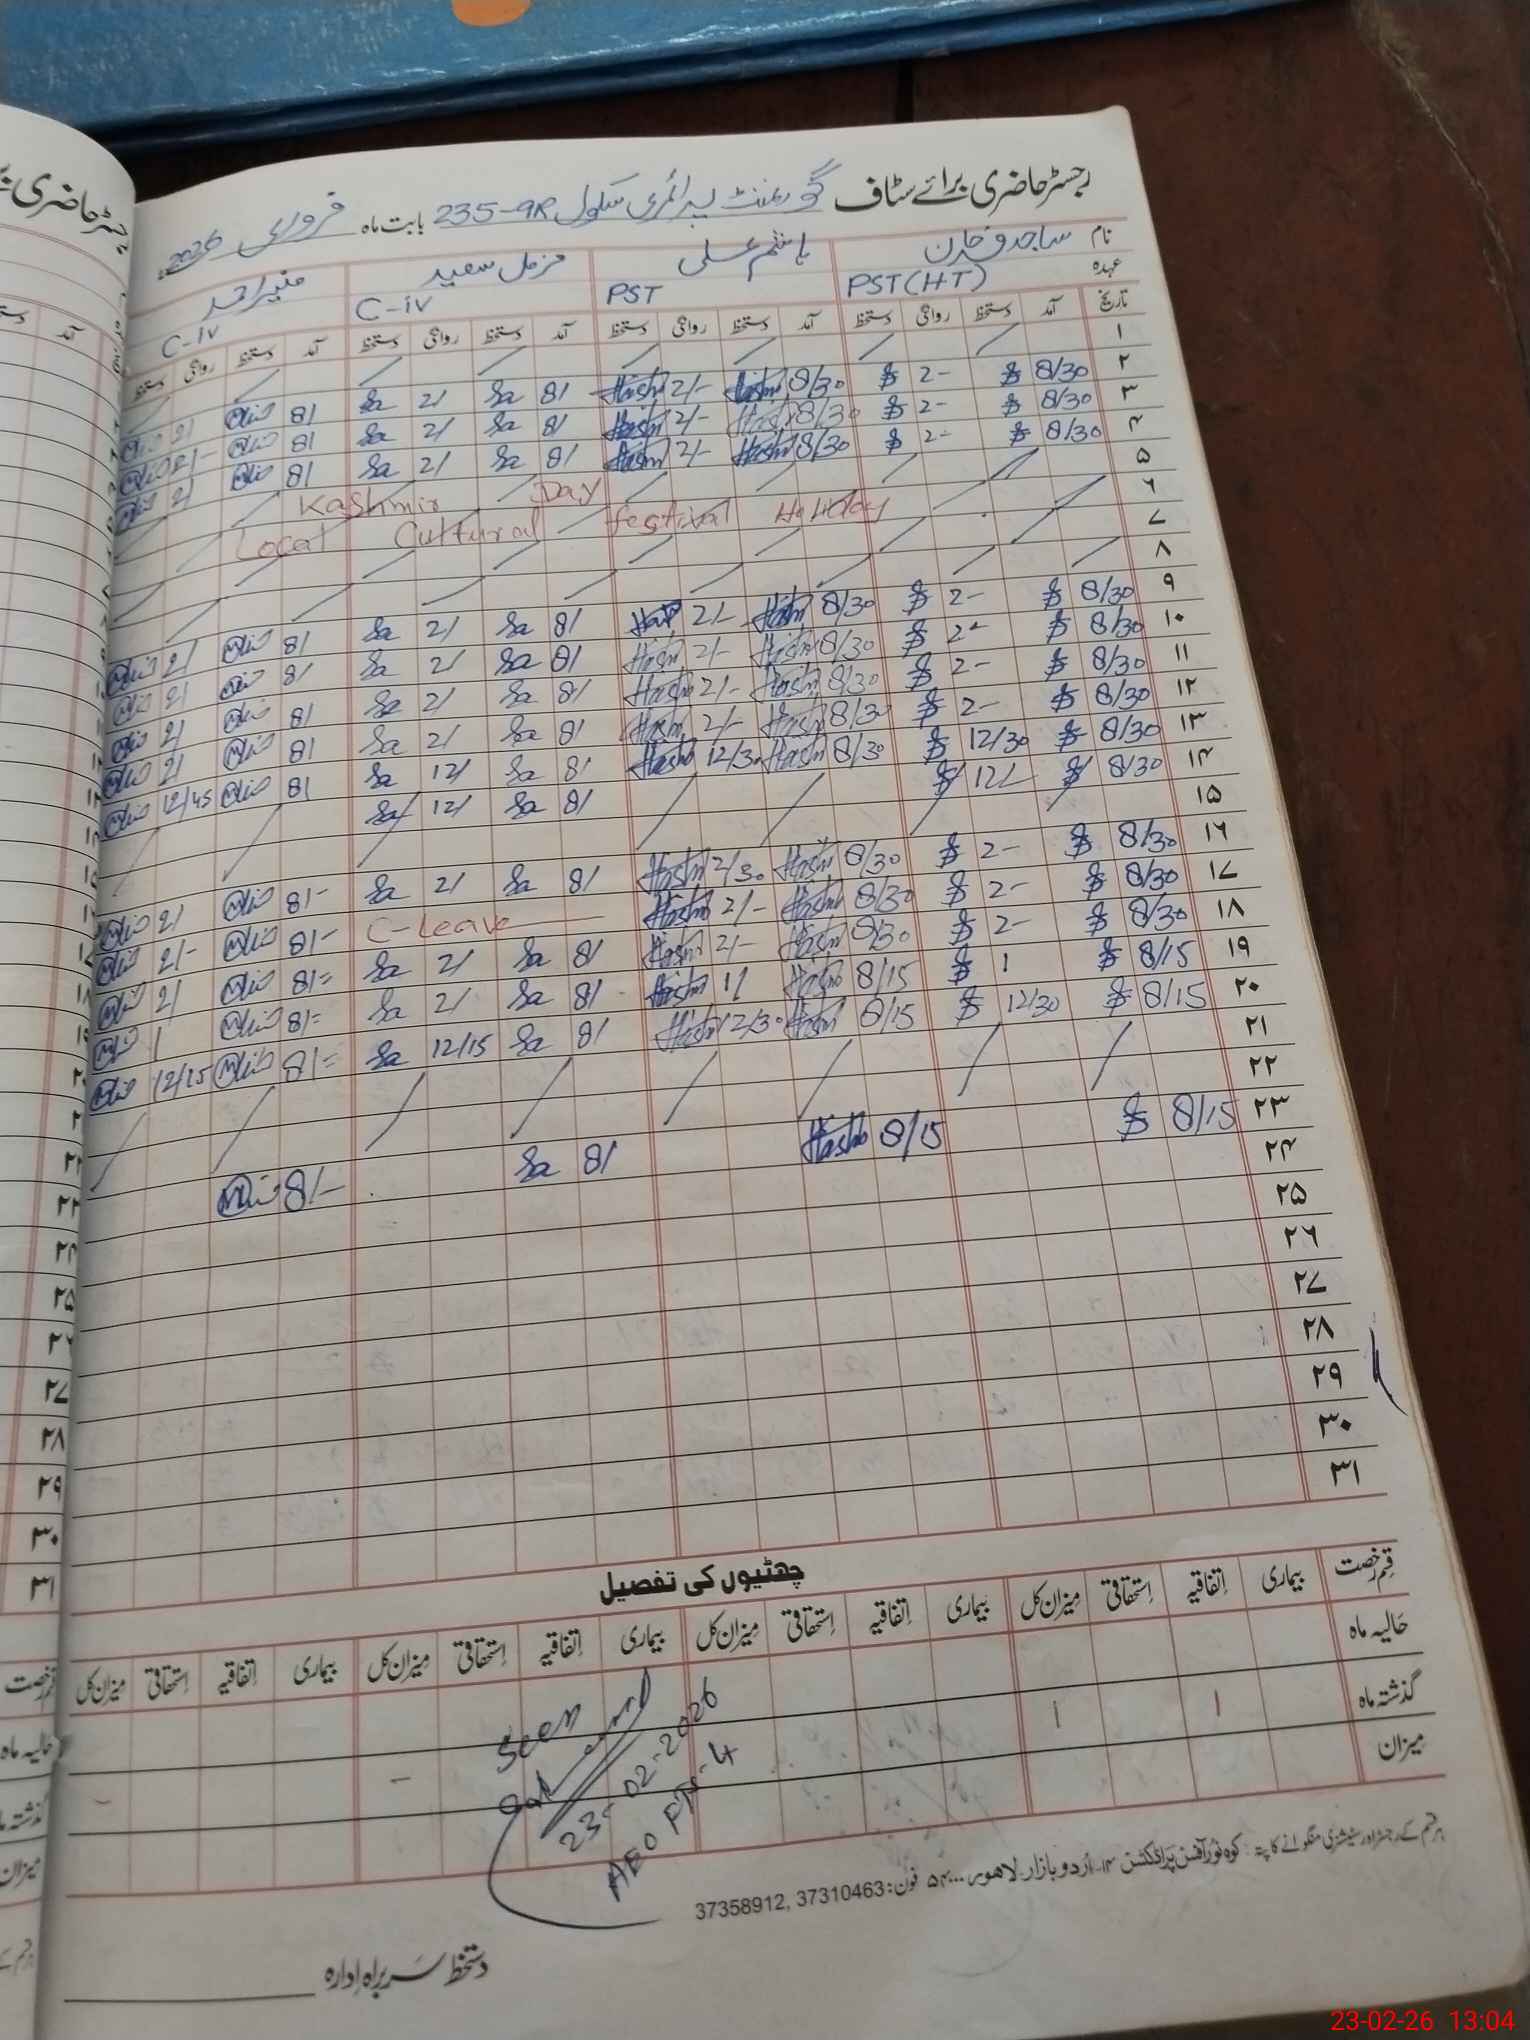 رجسٹر حاضری برائے سٹاف گورنمنٹ پرائمری سکول 235-9R بابت ماہ فروری 2026ء
نام ساجد فخرن ہاشم علی مزمل سعید منیر احمد
عہدہ PST(HT) PST C-iv C-iv
تاریخ آمد دستخط روانگی دستخط آمد دستخط روانگی دستخط آمد دستخط روانگی دستخط آمد دستخط روانگی دستخط
۱
۲ 8/30 2- 8/30 Hashm 2/- Hashm 8/ Sa 2/ Sa 8/ 2/
۳ 8/30 2- 8/30 Hashm 2/- Hashm 8/ Sa 2/ Sa 8/ 2/-
۴ 8/30 2- 8/30 Hashm 2/- Hashm 8/ Sa 2/ Sa 8/ 2/
۵ Kashmir Day
۶ Local Cultural festival Holiday
۷
۸
۹ 8/30 2- 8/30 Hashm 2/- 8/ Sa 2/ Sa 8/ 2/
۱۰ 8/30 2- 8/30 Hashm 2/- Hashm 8/ Sa 2/ Sa 8/ 2/
۱۱ 8/30 2- 8/30 Hashm 2/- Hashm 8/ Sa 2/ Sa 8/ 2/
۱۲ 8/30 2- 8/30 Hashm 2/- Hashm 8/ Sa 2/ Sa 8/ 2/
۱۳ 8/30 12/30 8/30 Hashm 12/30 Hashm 8/ Sa 12/ Sa 8/ 12/45
۱۴ 8/30 12/- 8/ Sa 12/ Sa
۱۵
۱۶ 8/30 2- 8/30 Hashm 2/30 Hashm 8/ Sa 2/ Sa 8/- 2/
۱۷ 8/30 2- 8/30 Hashm 2/- Hashm C-Leave 8/- 2/-
۱۸ 8/30 2- 8/30 Hashm 2/- Hashm 8/ Sa 2/ Sa 8/= 2/
۱۹ 8/15 1 8/15 Hashm 1/ Hashm 8/ Sa 2/ Sa 8/= 1
۲۰ 8/15 12/30 8/15 Hashm 12/30 Hashm 8/ Sa 12/15 Sa 8/= 12/15
۲۱
۲۲
۲۳ 8/15 8/15 Hashm 8/ Sa 8/-
۲۴
۲۵
۲۶
۲۷
۲۸
۲۹
۳۰
۳۱
چھٹیوں کی تفصیل
قسم رخصت بیماری اتفاقیہ استحقاقی میزان کل بیماری اتفاقیہ استحقاقی میزان کل بیماری اتفاقیہ استحقاقی میزان کل بیماری اتفاقیہ استحقاقی میزان کل
حالیہ ماہ
گذشتہ ماہ ۱ ۱ - -
میزان
Seen
23-02-2026
AEO
ہر قسم کے رجسٹر اور سٹیشنری منگوانے کا پتہ: کوہ نور آفسٹ پراڈکشن ۱۴۔ اُردو بازار۔ لاہور۔ ۵۴۰۰۰ فون: 37358912, 37310463
دستخط سربراہ ادارہ
23-02-26 13:04